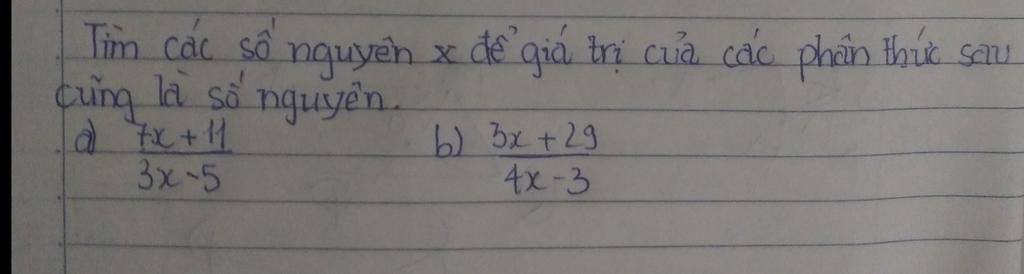 Tìm các số nguyên x để giá trị của các phân thức sau
cũng là số nguyên.
a) 7x + 11 / 3x - 5 b) 3x + 29 / 4x - 3